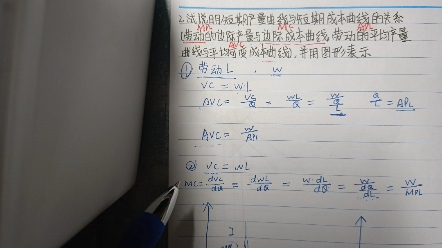 2. 试说明短期产量曲线与短期成本曲线的关系
MPL MC APL
(劳动的边际产量与边际成本曲线, 劳动的平均产量
AVC
曲线与平均可变成本曲线), 并用图形表示
① 劳动L, w
VC = wL
AVC = VC/Q = wL/Q = w/(Q/L) Q/L = APL
AVC = w/APL
② VC = wL
MC = dVC/dQ = dwL/dQ = w·dL/dQ = w/(dQ/dL) = w/MPL
I